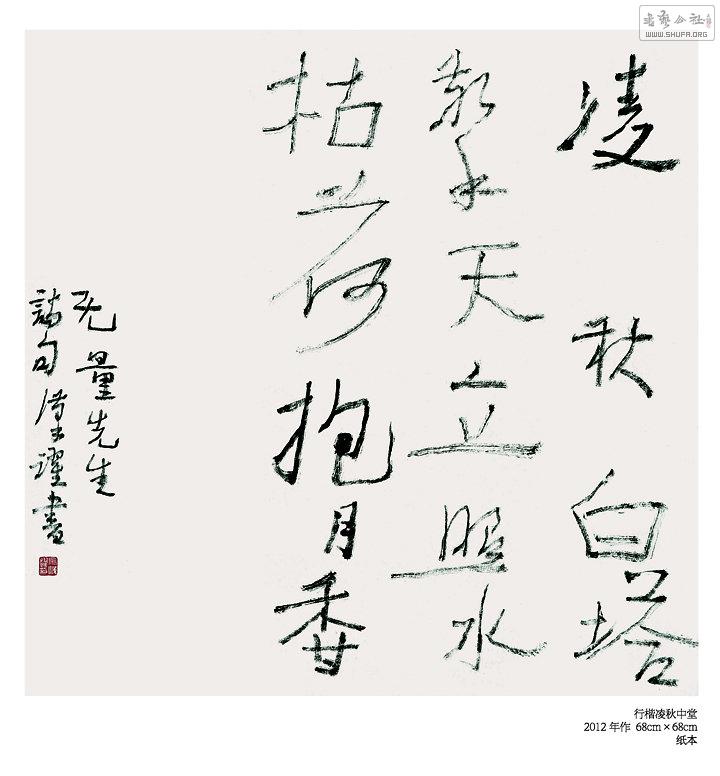 书艺公社
WWW.SHUFA.ORG
凌秋白塔
擎天立照水
枯荷抱月香
无量先生
詩句 躍書
行楷凌秋中堂
2012 年作 68cm×68cm
纸本